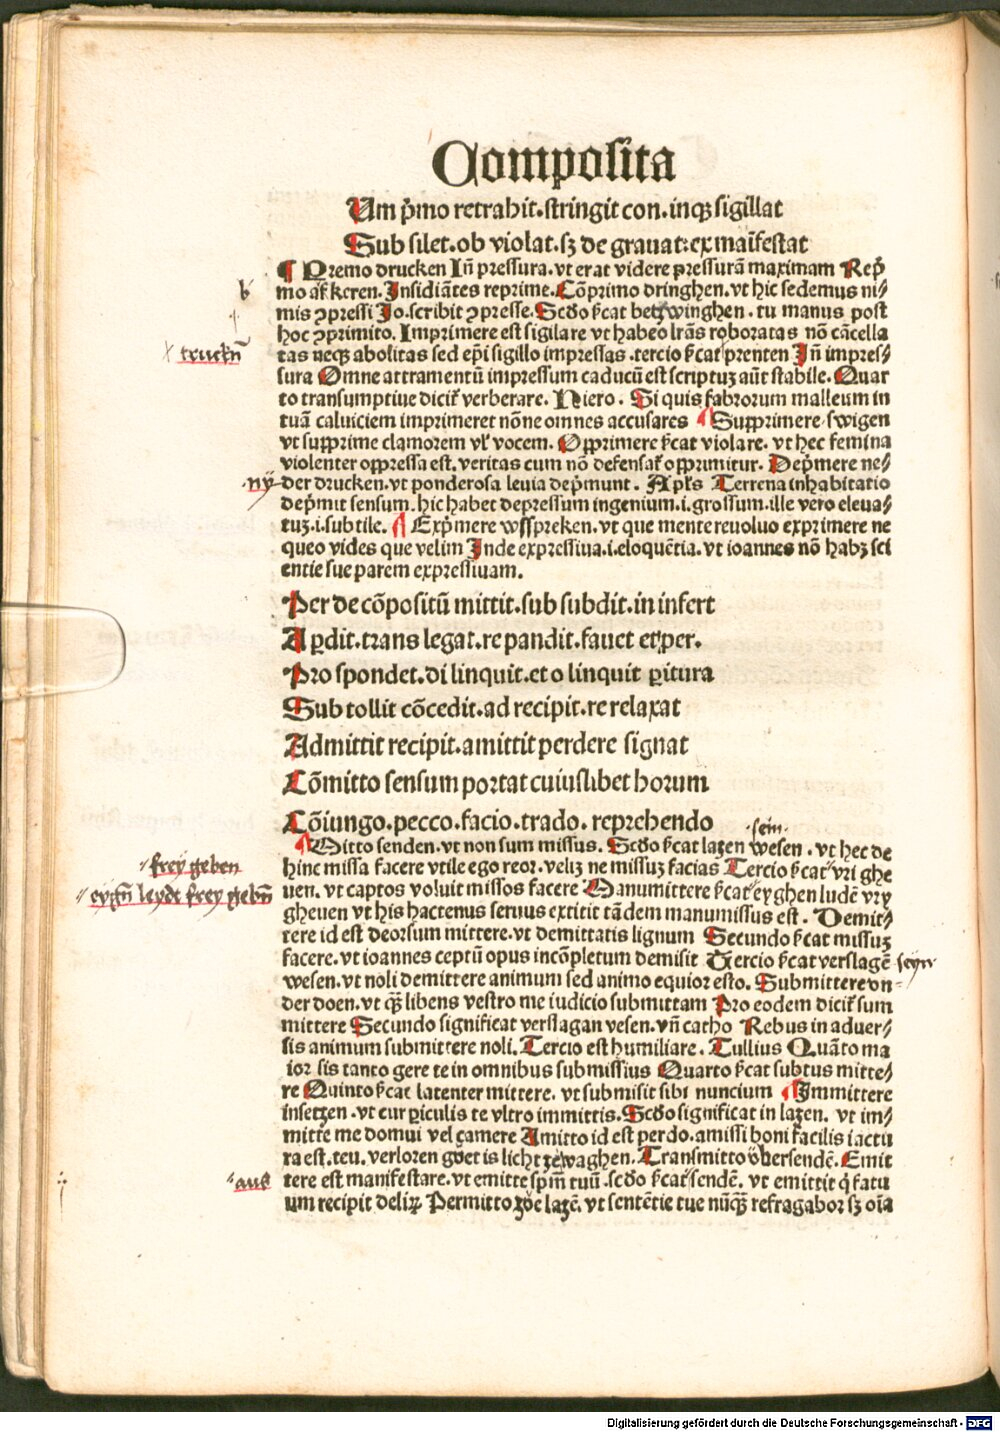 Composita
Um p̄mo retrahit.stringit con.inqꝫ sigillat
Sub silet.ob violat.sꝫ de grauat:ex maīfestat
¶ Premo drucken Iñ pressura.vt erat videre pressurā maximam Rep̄
mo af keren.Insidiātes reprime.Cōprimo dringhen.vt hic sedemus ni⸗
mis ꝯpressi Io.scribit ꝯpresse.Scd̄o ſicat betzwinghen.tu manus post
hoc ꝯprimito.Imprimere est sigilare vt habeo lr̄as roboratas nō cācella
tas neqꝫ abolitas sed ep̄i sigillo impressas.tercio ſicat prenten Iñ impres⸗
sura Omne attramentū impressum caducū est scriptuꝫ aūt stabile.Quar
to transumptiue dicit᷑ verberare. Niero. Si quis fabrorum malleum in
tuā caluiciem imprimeret nōne omnes accusares ¶ Supprimere swigen
vt supprime clamorem vl̓ vocem. Opprimere ſicat violare.vt hec femina
violenter oppressa est.veritas cum nō defensat᷑ opprimitur. Dep̄mere ne⸗
der drucken.vt ponderosa leuia dep̄munt. Apl̓s Terrena inhabitatio
dep̄mit sensum.hic habet depressum ingenium.i.grossum.ille vero eleua⸗
tuꝫ.i.subtile. ¶ Exp̄mere wsspreken.vt que mente reuoluo exprimere ne
queo vides que velim Inde expressiua.i.eloquētia.vt ioannes nō habꝫ sci
entie sue parem expressiuam.
Per de cōpositū mittit.sub subdit.in infert
A ꝑdit.trans legat.re pandit.fauet et per.
Pro spondet.di linquit.et o linquit ꝑitura
Sub tollit cōcedit.ad recipit.re relaxat
Admittit recipit.amittit perdere signat
Cōmitto sensum portat cuiuslibet horum
Cōiungo.pecco.facio.trado.reprehendo
·sein·
¶ Mitto senden.vt non sum missus. Scd̄o ſicat lazen wesen.vt hec de
hinc missa facere vtile ego reor.veliꝫ ne missuꝫ facias Tercio ſicat vri ghe
uen.vt captos voluit missos facere Manumittere ſicat eyghen ludē vry
gheuen vt his hactenus seruus extitit tādem manumissus est. Demit⸗
tere id est deorsum mittere.vt demittatis lignum Secundo ſicat missuꝫ
facere.vt ioannes ceptū opus incōpletum demisit Tercio ſicat verslagē
wesen.vt noli demittere animum sed animo equior esto. Submittere vn⸗
der doen.vt qꝫ libens vestro me iudicio submittam Pro eodem dicit᷑ sum
mittere Secundo significat verslagan vesen.vñ catho Rebus in aduer⸗
sis animum submittere noli.Tercio est humiliare. Tullius Quāto ma
ior sis tanto gere te in omnibus submissius Quarto ſicat subtus mitte⸗
re Quinto ſicat latenter mittere. vt submisit sibi nuncium ¶ Immittere
insetzen.vt cur ꝑiculis te vltro immittis.Scd̄o significat in lazen. vt im⸗
mitte me domui vel camere Amitto id est perdo.amissi boni facilis iactu
ra est.teu.verloren goet is licht zewaghen.Transmitto obersendē.Emit
tere est manifestare.vt emitte spm̄ tuū.scd̄o ſicat sendē.vt emittit q̄ fatu
um recipit deliꝝ Permitto zoe lazē.vt sentētie tue nūqꝫ refragabor sꝫ oīa
b
truckn̄
·ny
frey geben
eygn̄ leydt frey gebn̄
seyn
aus
Digitalisierung gefördert durch die Deutsche Forschungsgemeinschaft - DFG